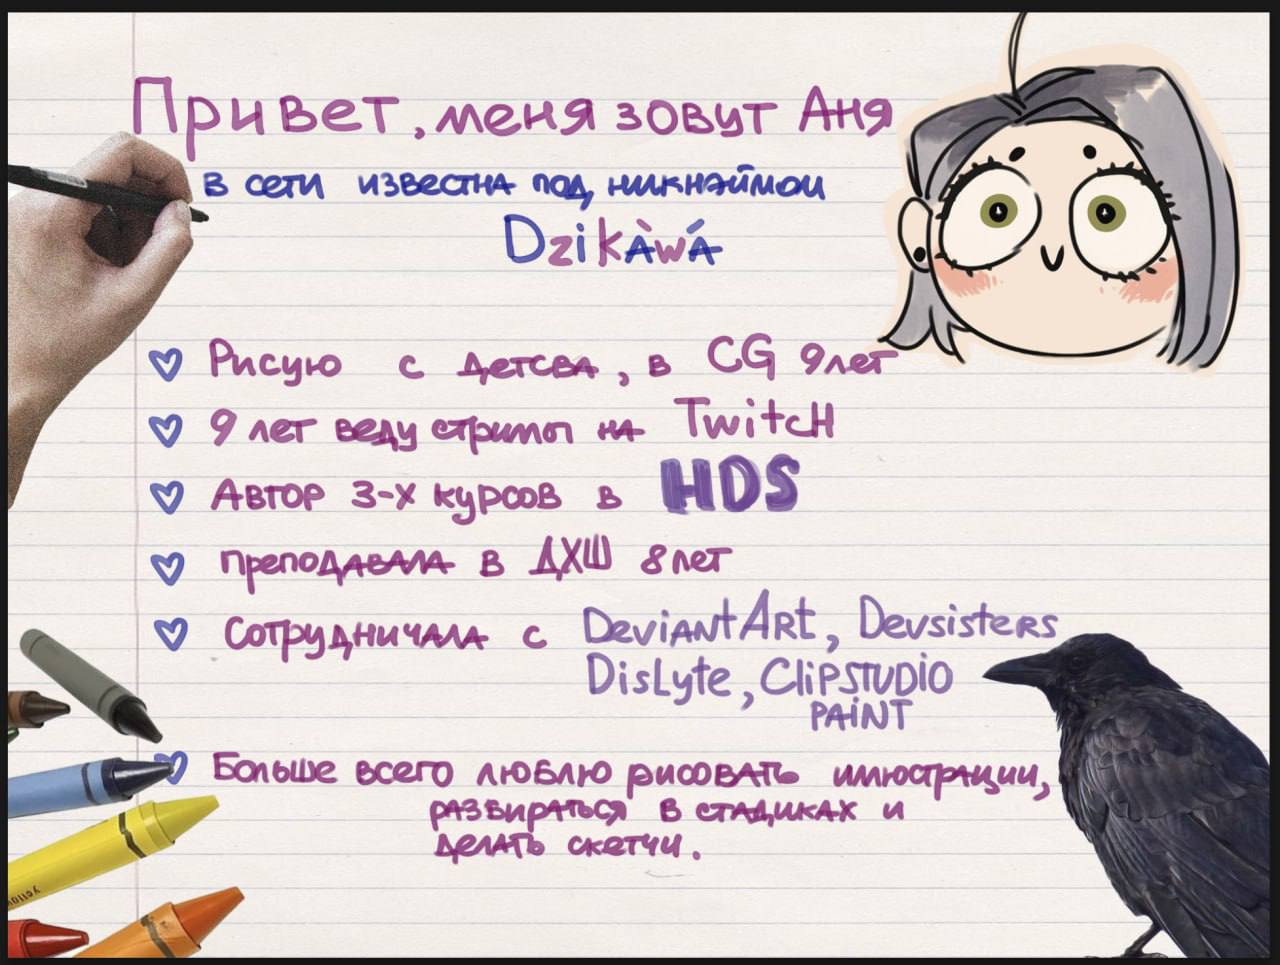 Привет, меня зовут Аня
в сети известна под никнэймом
Dzikàwá
Рисую с детсва, в CG 9 лет
9 лет веду стримы на Twitch
Автор 3-х курсов в HDS
преподавала в ДХШ 8 лет
Сотрудничала с DeviantArt, Devsisters
Dislyte, ClipSTUDIO
PAINT
Больше всего люблю рисовать илюстрации,
развираться в стадиках и
делать скетчи.
yellow